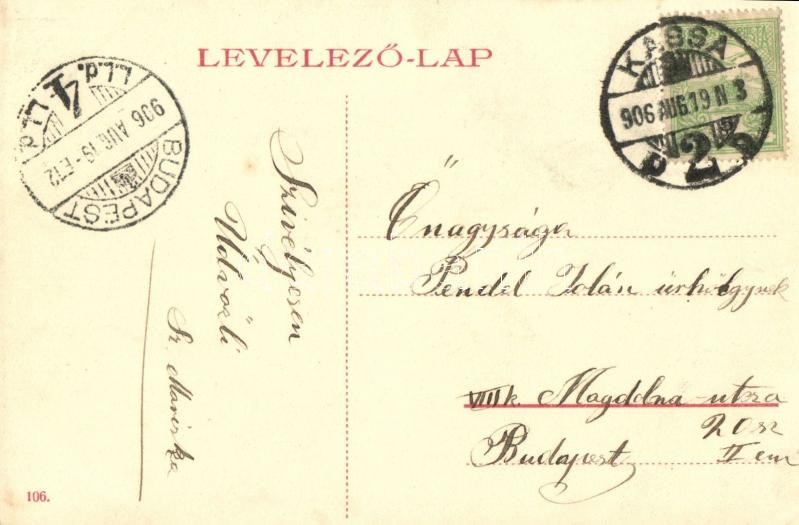 LEVELEZŐ-LAP
KASSA
906 AUG.19 N 3
2
BUDAPEST
906 AUG.19-E.12
4
Szivélyesen
Üdvözli
Sz. Mariska
Őnagysága
Pendel Jolán úrhölgynek
VIII k. Magdolna-utcza
20 sz
Budapest II em
106.